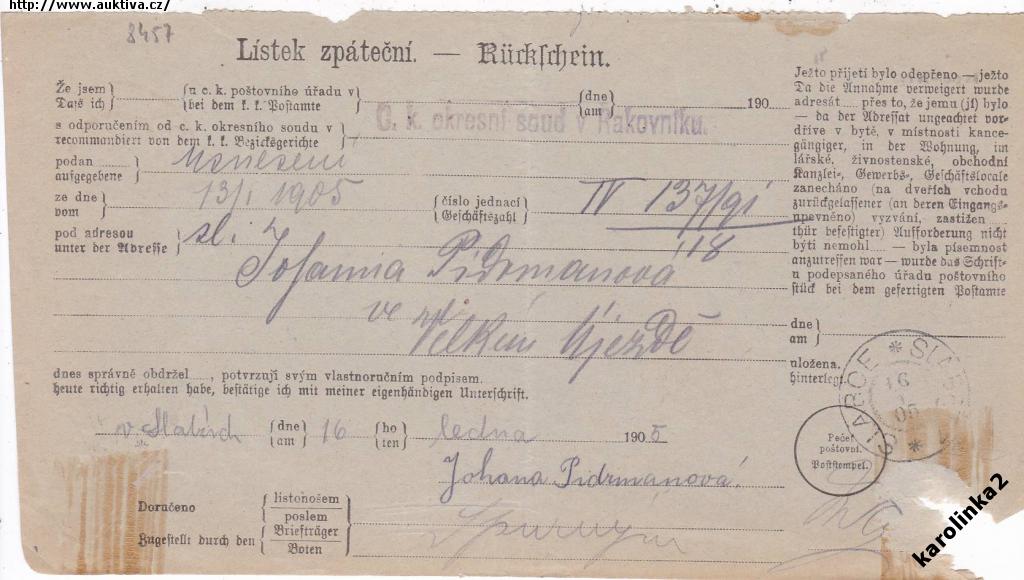 http://www.auktiva.cz/
8457
Lístek zpáteční. — Rückschein.
Že jsem } { u c. k. poštovního úřadu v } { dne } 190
Dass ich } { bei dem k. k. Postamte } { am }
C. k. okresní soud v Rakovníku.
s odporučením od c. k. okresního soudu v }
recommandiert von dem k. k. Bezirksgerichte }
podan } Usnesení
aufgegebene }
ze dne } 13/I 1905 { číslo jednací } IV 137/91
vom } { Geschäftszahl } 118
pod adresou } sl.
unter der Adresse }
Johanna Pidrmanová
ve Velkém Újezdě
dnes správně obdržel, potvrzuji svým vlastnoručním podpisem.
heute richtig erhalten habe, bestätige ich mit meiner eigenhändigen Unterschrift.
v Slabích { dne } 16 { ho } ledna 1905
{ am } { ten }
Johana Pidrmanová.
Doručeno { listonošem
poslem
Zugestellt durch den { Briefträger
Boten
Ježto přijetí bylo odepřeno — ježto
Da die Annahme verweigert wurde
adresát přes to, že jemu (jí) bylo
— da der Adressat ungeachtet vor-
dříve v bytě, v místnosti kance-
gängiger, in der Wohnung, im
lářské, živnostenské, obchodní
Kanzlei-, Gewerbs-, Geschäftslocale
zanecháno (na dveřích vchodu
zurückgelassener (an deren Eingangs-
upevněno) vyzvání, zastižen
thür befestigter) Aufforderung nicht
býti nemohl — byla písemnost
anzutreffen war — wurde das Schrift-
u podepsaného úřadu poštovního
stück bei dem gefertigten Postamte
dne }
am }
uložena.
hinterlegt.
SLABCE * SLABCE *
16
05
Pečeť
poštovní.
Poststempel.
karolinka2